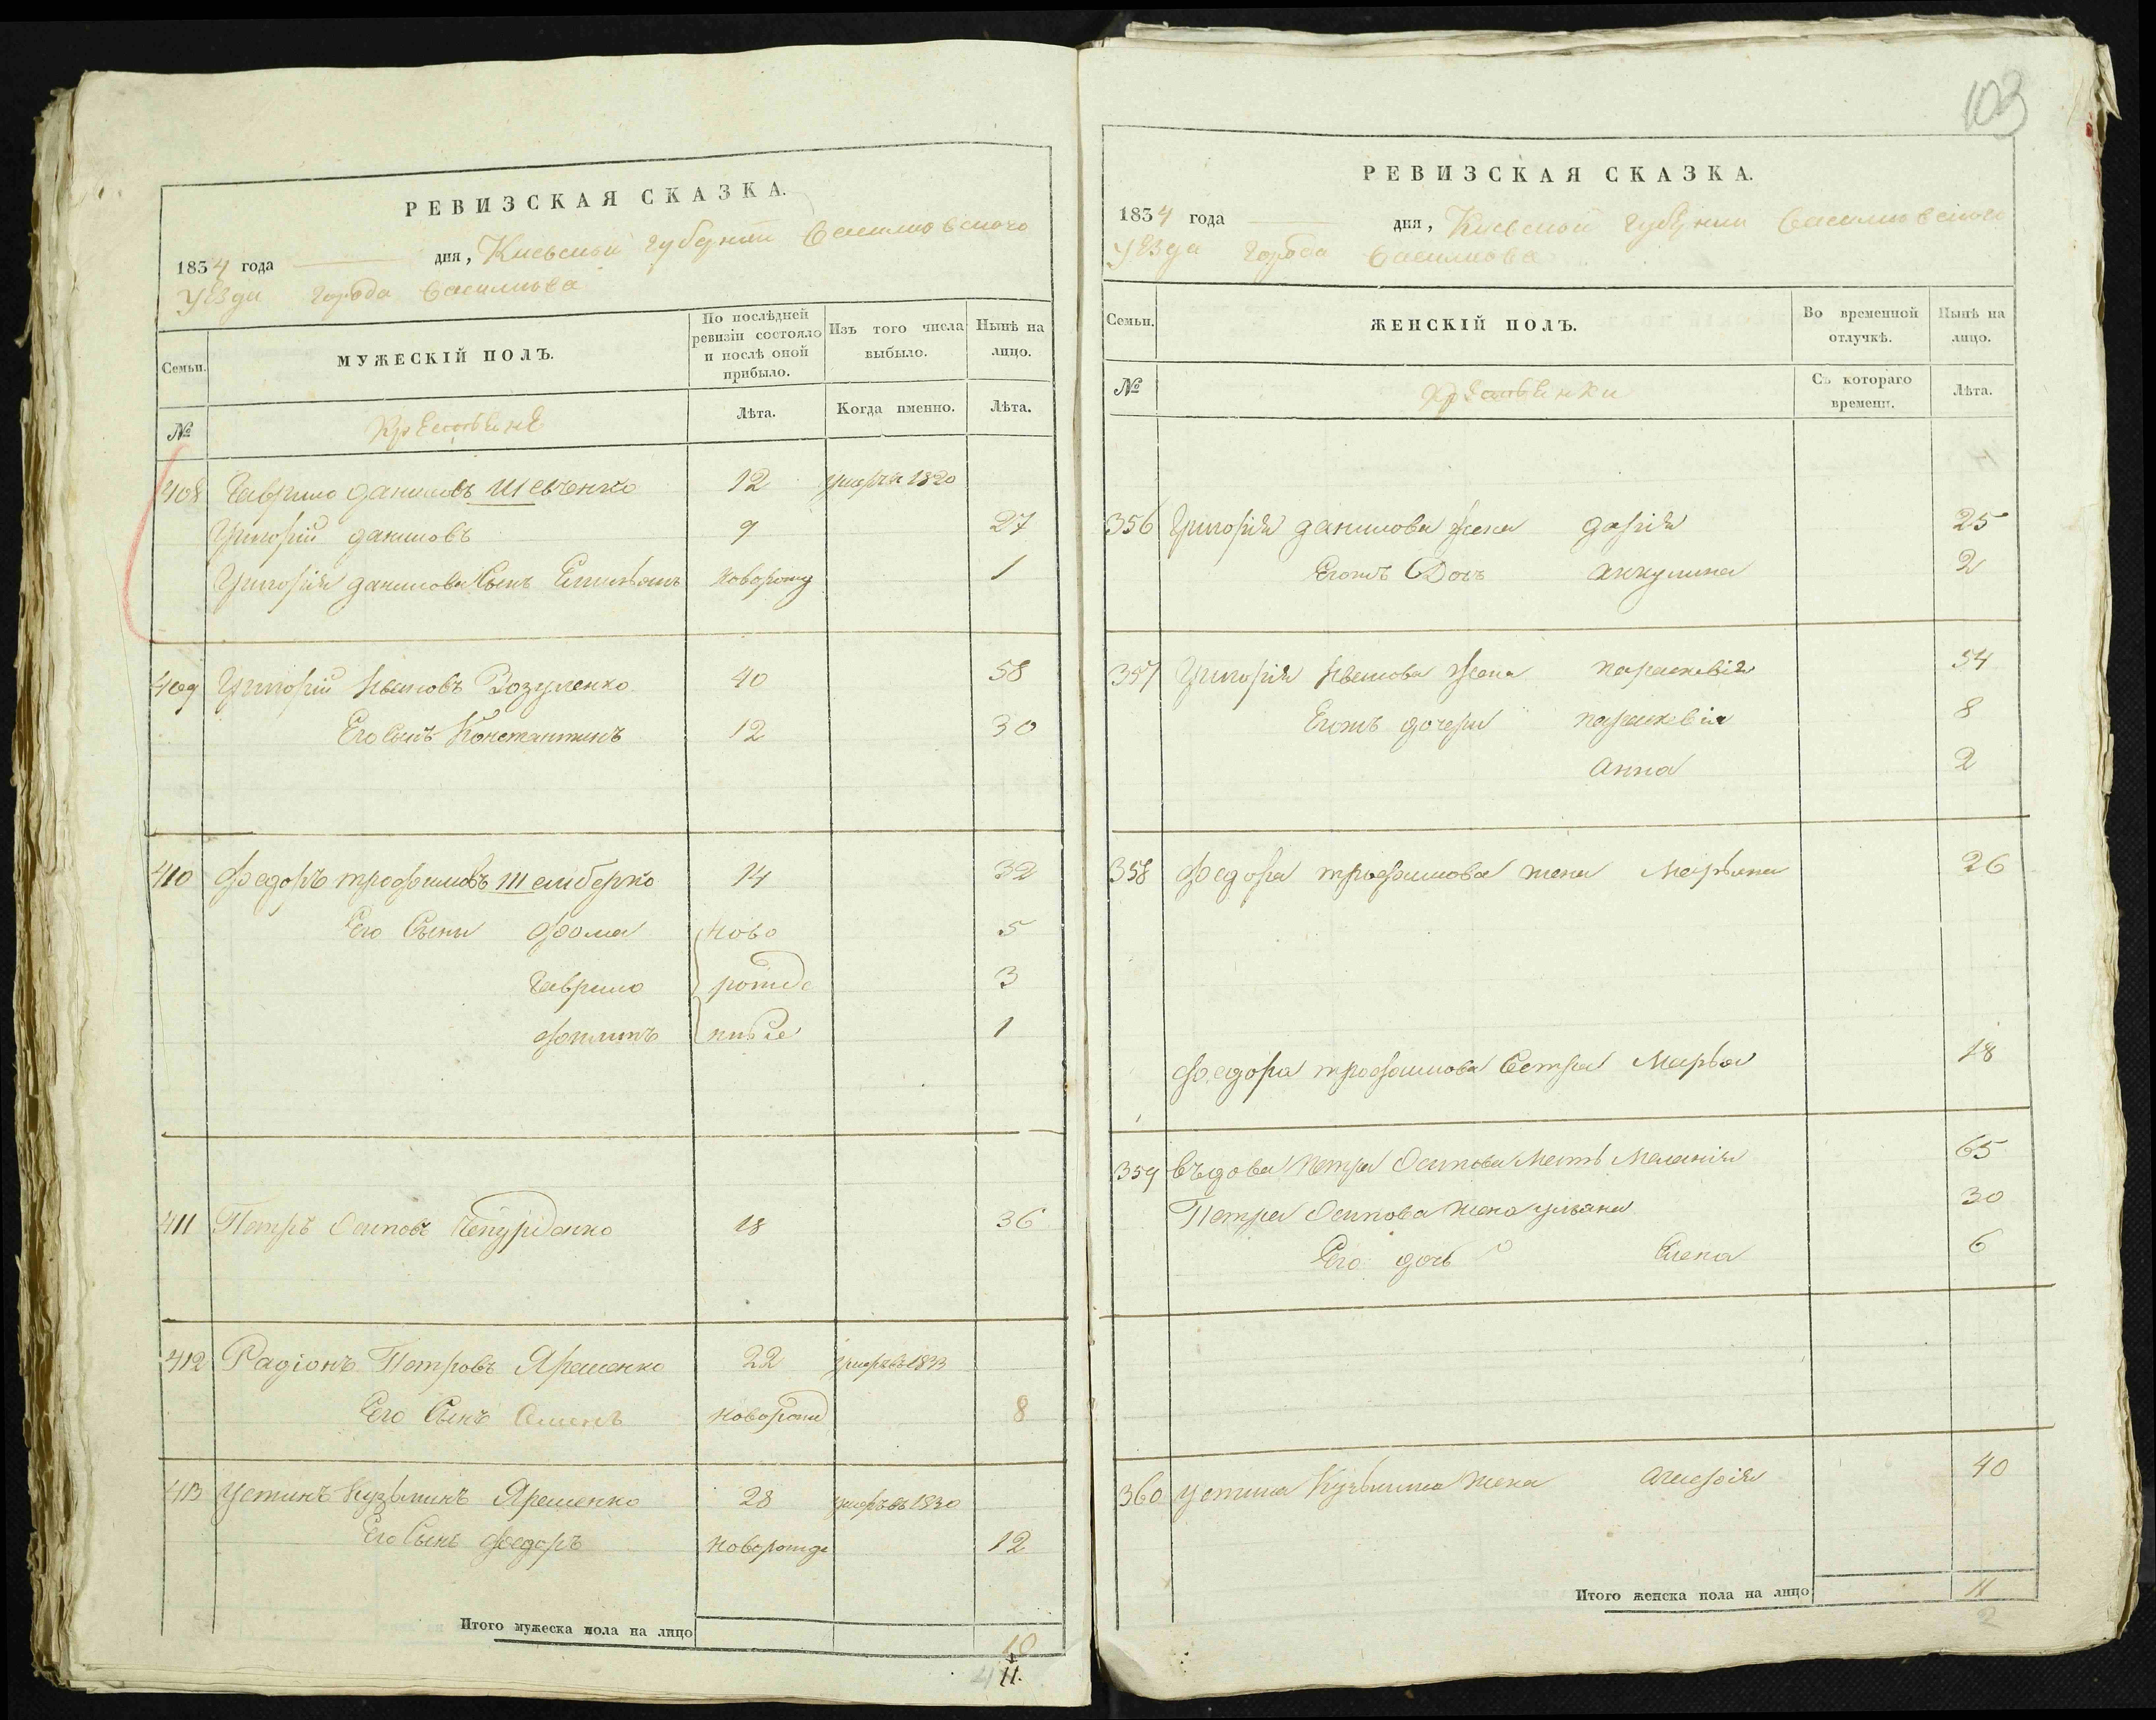 РЕВИЗСКАЯ СКАЗКА.
1834 года дня, Киевской губернии Василковского
уезда города Василкова
Семьи. МУЖЕСКІЙ ПОЛЪ. По послѣдней ревизіи состояло и послѣ оной прибыло. Изъ того числа выбыло. Нынѣ на лицо.
№ Крестьяне Лѣта. Когда именно. Лѣта.
408 Гаврило даниловъ Шевченко 12 умеръ 1820
Григорій даниловъ 9 27
Григорія данилова Сынъ Емильянъ новорожд 1
409 Григорій Ивановъ Зозуленко 40 58
Его Сынъ Константинъ 12 30
410 Федоръ трофимовъ 14 32
Его Сыны Фома ново 5
Гаврило рожде 3
Филипъ нные 1
411 Петръ Осиповъ 18 36
412 Радіонъ Петровъ Яременко 22 умеръ въ 1833
Его Сынъ Семенъ новорожд 8
413 Устинъ Кузьминъ Яременко 28 умеръ въ 1830
Его Сынъ Федоръ новорожде 12
Итого мужеска пола на лицо 10
11.
103
РЕВИЗСКАЯ СКАЗКА.
1834 года дня, Киевской губернии Василковского
уезда города Василкова
Семьи. ЖЕНСКІЙ ПОЛЪ. Во временной отлучкѣ. Нынѣ на лицо.
№ Крестьянки Съ котораго времени. Лѣта.
356 Григорія данилова жена дарія 25
Егожъ Дочъ аккулина 2
357 Григорія Иванова жена параскевія 54
Егожъ дочери параскевія 8
анна 2
358 Федора трофимова жена Марьяна 26
Федора трофимова Сестра Марья 18
359 въдова Петра Осипова Мать Меланія 65
Петра Осипова жена ульяна 30
Его дочь Елена 6
360 устина Кузьмина жена 40
Итого женска пола на лицо 11
2